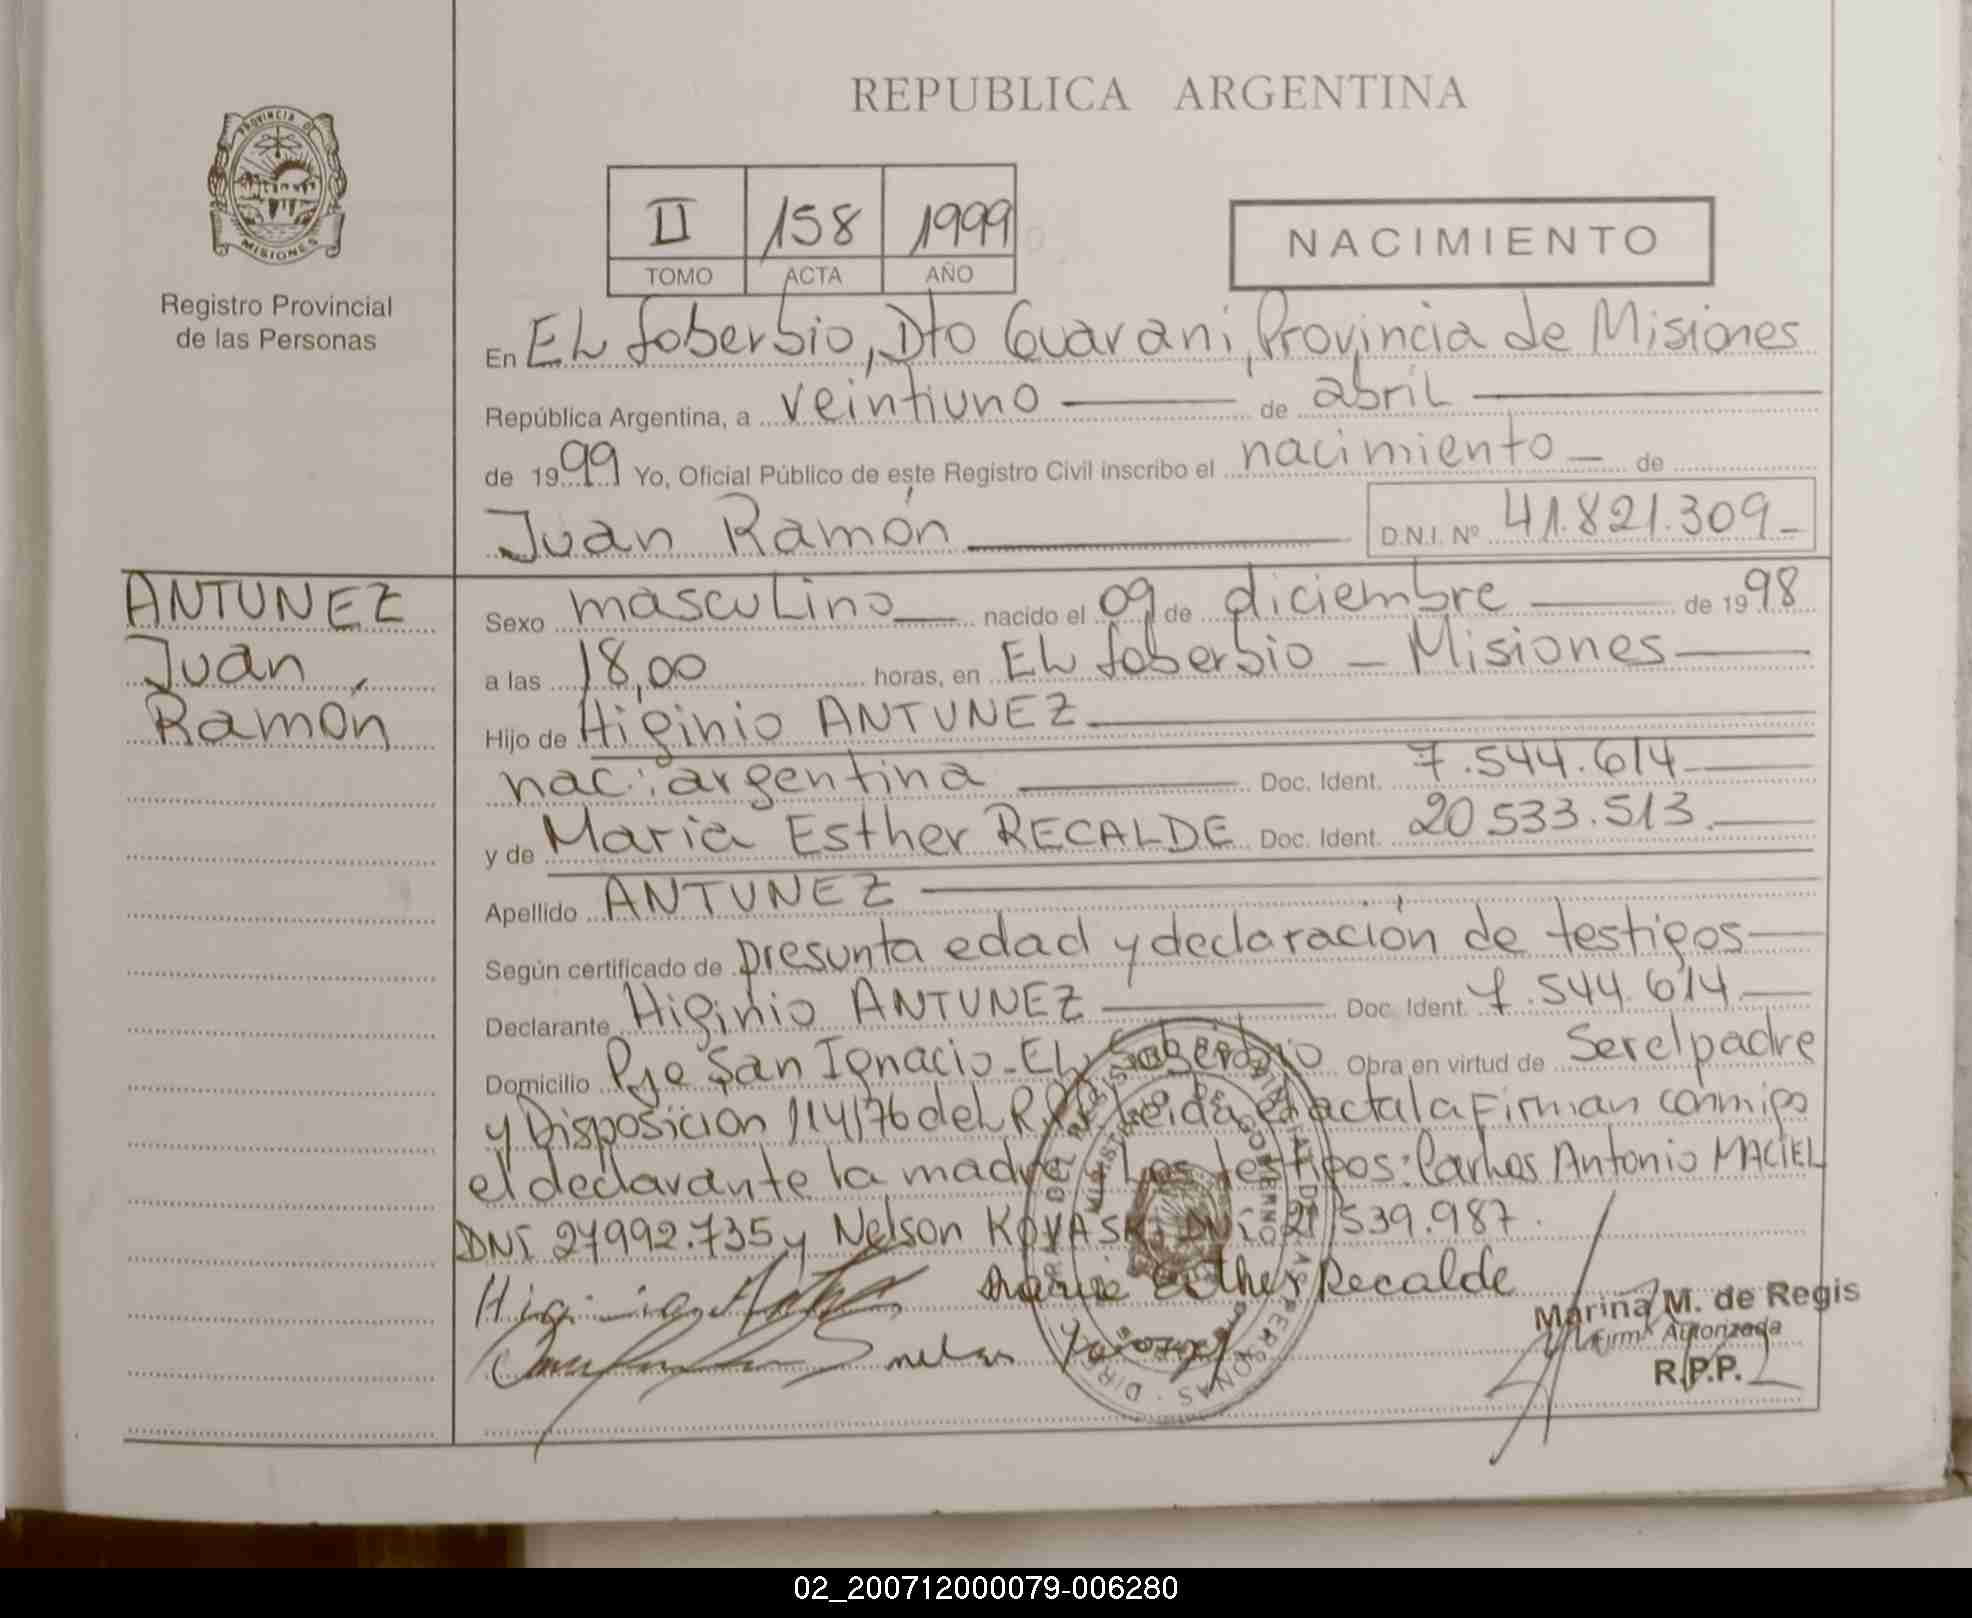 REPUBLICA ARGENTINA
PROVINCIA DE
MISIONES
Registro Provincial
de las Personas
II 158 1999
TOMO ACTA AÑO
NACIMIENTO
En EL Soberbio, Dto Guarani, Provincia de Misiones
República Argentina, a veintiuno de abril
de 1999 Yo, Oficial Público de este Registro Civil inscribo el nacimiento de
Juan Ramón D.N.I. Nº 41.821.309
ANTUNEZ
Juan
Ramón
Sexo masculino nacido el 09 de diciembre de 1998
a las 18,00 horas, en EL Soberbio - Misiones
Hijo de Higinio ANTUNEZ
nac: argentina Doc. Ident. 7.544.614
y de Maria Esther RECALDE Doc. Ident. 20533.513.
Apellido ANTUNEZ
Según certificado de presunta edad y declaración de testigos
Declarante Higinio ANTUNEZ Doc. Ident. 7.544.614
Domicilio Pje San Ignacio - EL Soberbio Obra en virtud de Ser el padre
y Disposición 114/76 del Leida el acta la Firman conmigo
el declarante la madre y Los testigos: Carlos Antonio MACIEL
DNI 27992.735 y Nelson KOVASKI DNI 21539.987.
Maria Esther Recalde
Marina M. de Regis
Firma Autorizada
R.P.P.
02_200712000079-006280